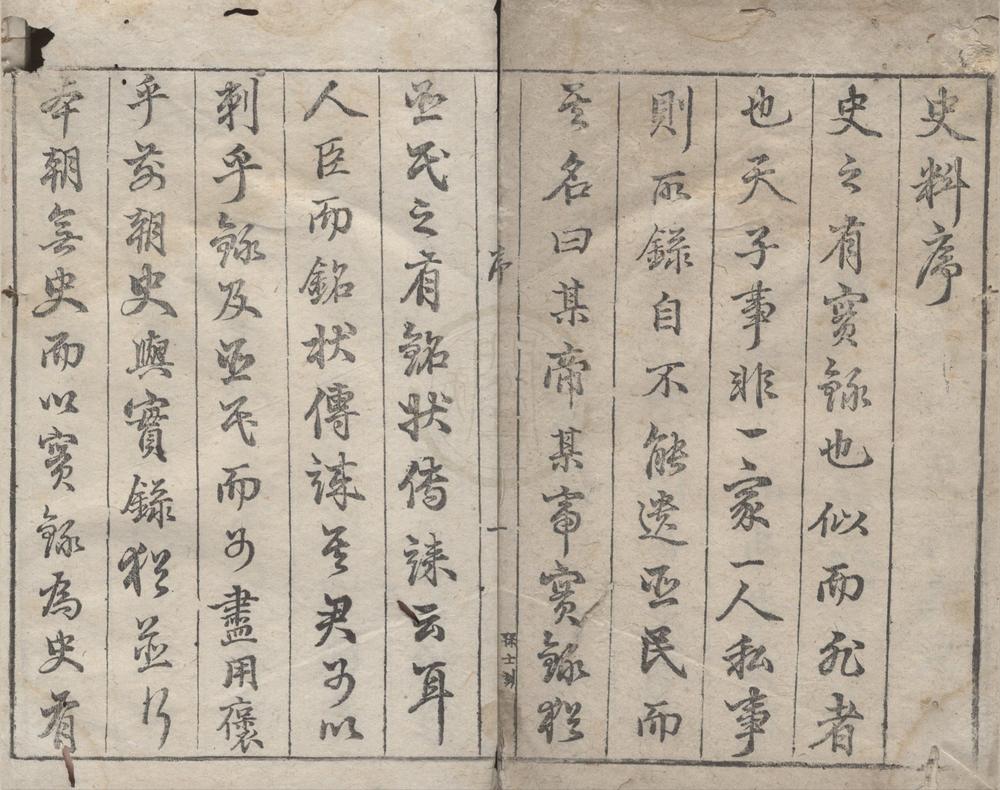 史料序
史之有實錄也似而非者
也天子事非一家一人私事
則所錄自不能遺臣民而
其名曰某帝某宗實錄猶
序
一
臣民之有銘狀傳誄云耳
人臣而銘狀傳誄其君可以
刺乎錄及臣民而可盡用褒
乎前朝史與實錄猶並行
本朝無史而以實錄為史有